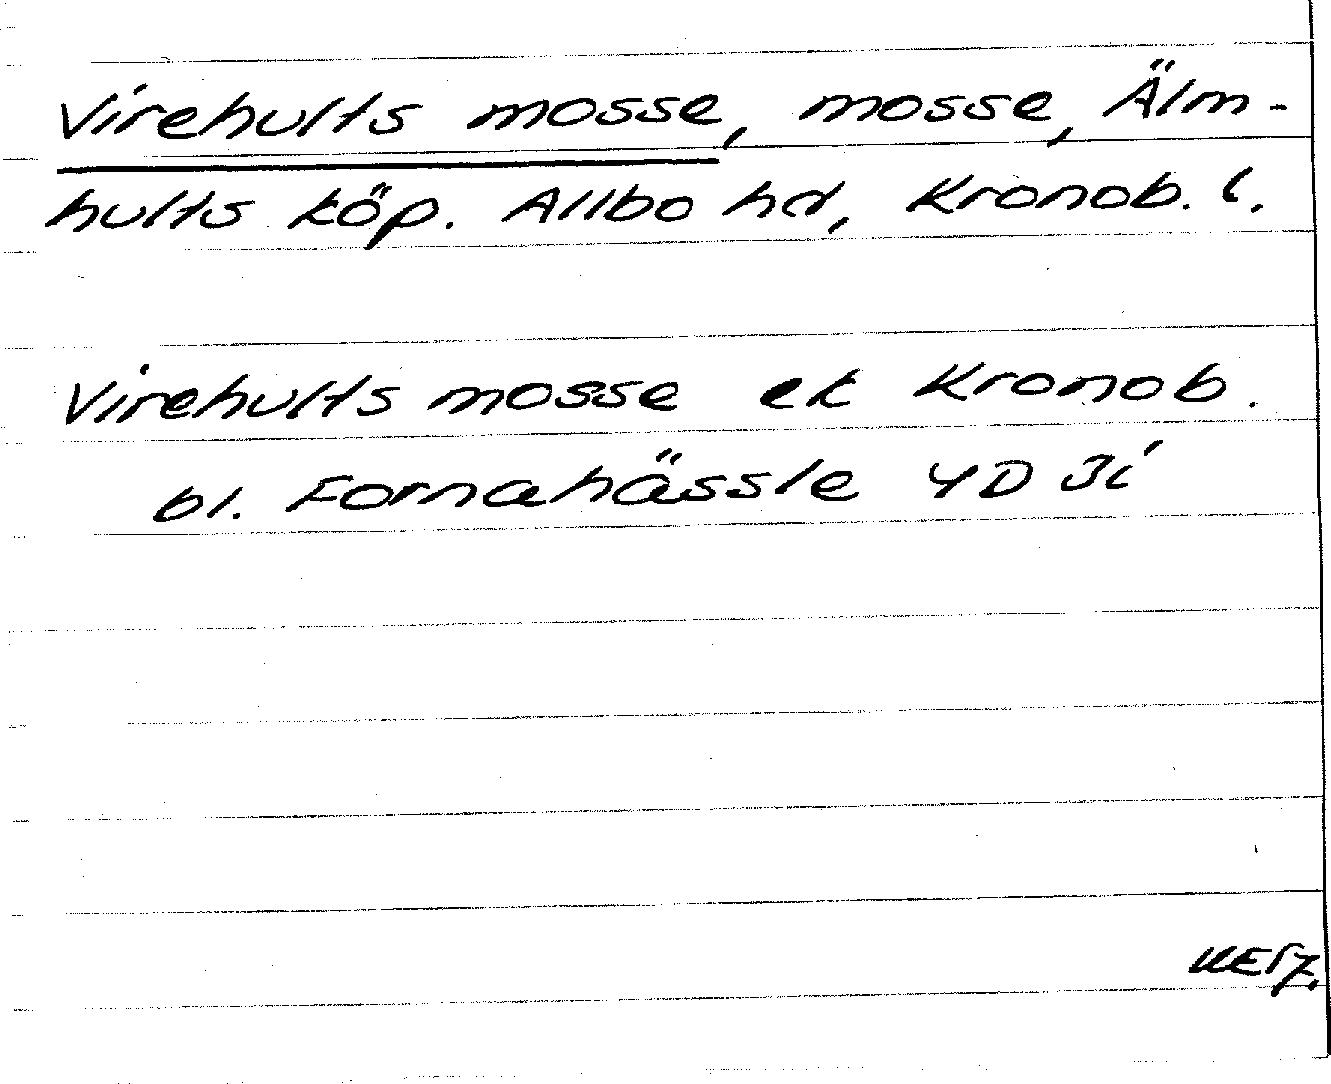 Virehults mosse, mosse, Älm-
hults köp. Allbo hd, Kronob. l.
Virehults mosse ek Kronob.
bl. Fornahässle 4D 3i